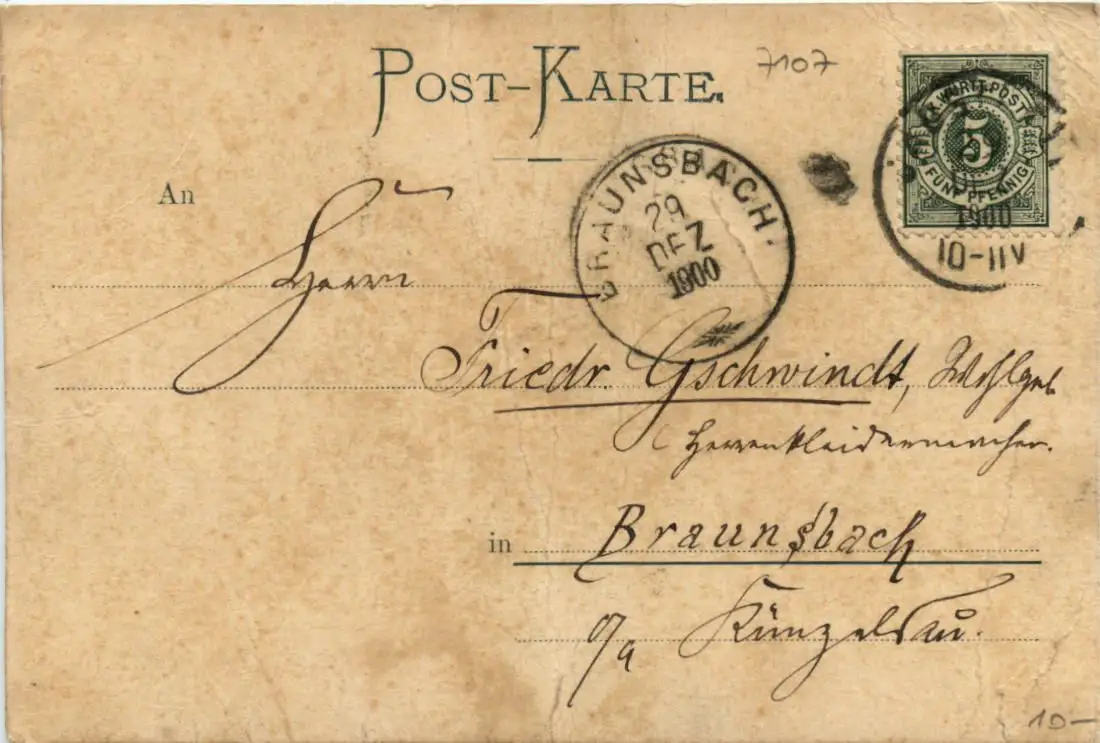 POST-KARTE.
7107
K. WÜRTT. POST
5
FÜNF PFENNIG
1900
10-11V
BRAUNSBACH.
29
DEZ
1900
An
Herrn
Friedr. Gschwindt, Wohlgeb
Herrenkleidermacher.
in Braunsbach
O/A Künzelsau.
10-